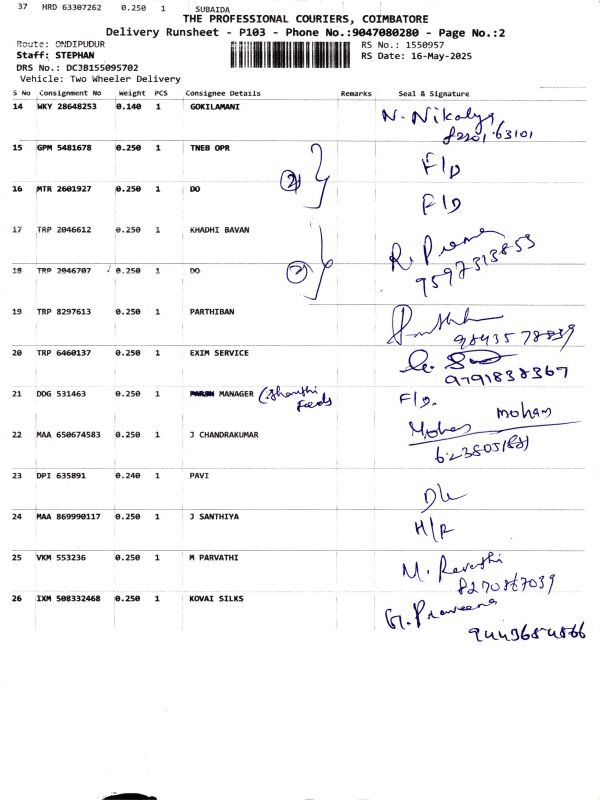 37 HRD 63307262 0.250 1 SUBAIDA
THE PROFESSIONAL COURIERS, COIMBATORE
Delivery Runsheet - P103 - Phone No.:9047080280 - Page No.:2
Route: ONDIPUDUR RS No.: 1550957
Staff: STEPHAN RS Date: 16-May-2025
DRS No.: DCJB155095702
Vehicle: Two Wheeler Delivery
S No Consignment No Weight PCS Consignee Details Remarks Seal & Signature
14 WKY 28648253 0.140 1 GOKILAMANI N. Nikalya
8220163101
15 GPM 5481678 0.250 1 TNEB OPR F/D
16 MTR 2601927 0.250 1 DO (2) F/D
17 TRP 2046612 0.250 1 KHADHI BAVAN R. Prema
18 TRP 2046707 0.250 1 DO (2) 9597313853
19 TRP 8297613 0.250 1 PARTHIBAN
9843578839
20 TRP 6460137 0.250 1 EXIM SERVICE
9791838367
21 DDG 531463 0.250 1 MANAGER (Shanthi Feeds F/D.
22 MAA 650674583 0.250 1 J CHANDRAKUMAR Mohan mohan
23 DPI 635891 0.240 1 PAVI D/L
24 MAA 869990117 0.250 1 J SANTHIYA H/R
25 VKM 553236 0.250 1 M PARVATHI M. Revathi
8270867039
26 IXM 508332468 0.250 1 KOVAI SILKS G. Praveena
9443684866